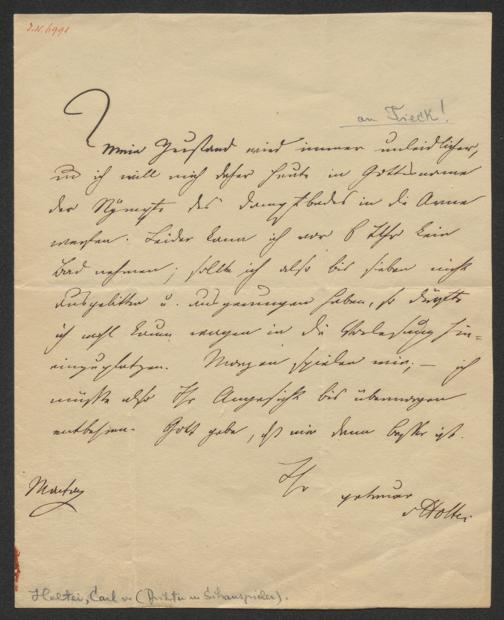 I.N. 6991
an Tieck!
Mein Zustand wird immer unleidlicher,
und ich will mich daher heute in Gottesname
der Nymphe des Dampfbades in die Arme
werfen. Leider kann ich vor 6 Uhr kein
Bad nehmen; sollte ich also bis sieben nicht
ausgelitten u. ausgerungen haben, so dürfte
ich wohl kaum wagen in die Vorlesung hin-
einzuplatzen. Morgen spielen wir; – ich
müßte also Ihr Angesicht bis übermorgen
entbehren. Gott gebe, daß mir dann besser ist.
Ihr
Montag
getreuer
vHoltei
Holtei, Carl v. (Dichter u Schauspieler).